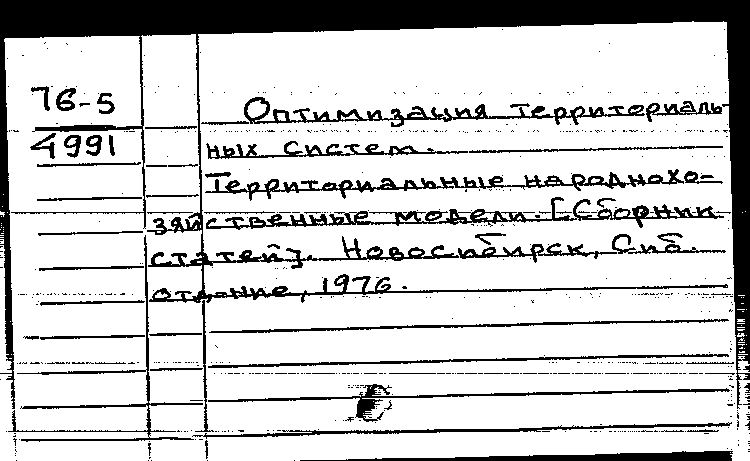 76-5
4991
Оптимизация территориаль-
ных систем.
Территориальные народнохо-
зяйственные модели. [Сборник
статей]. Новосибирск, Сиб.
отд-ние, 1976.